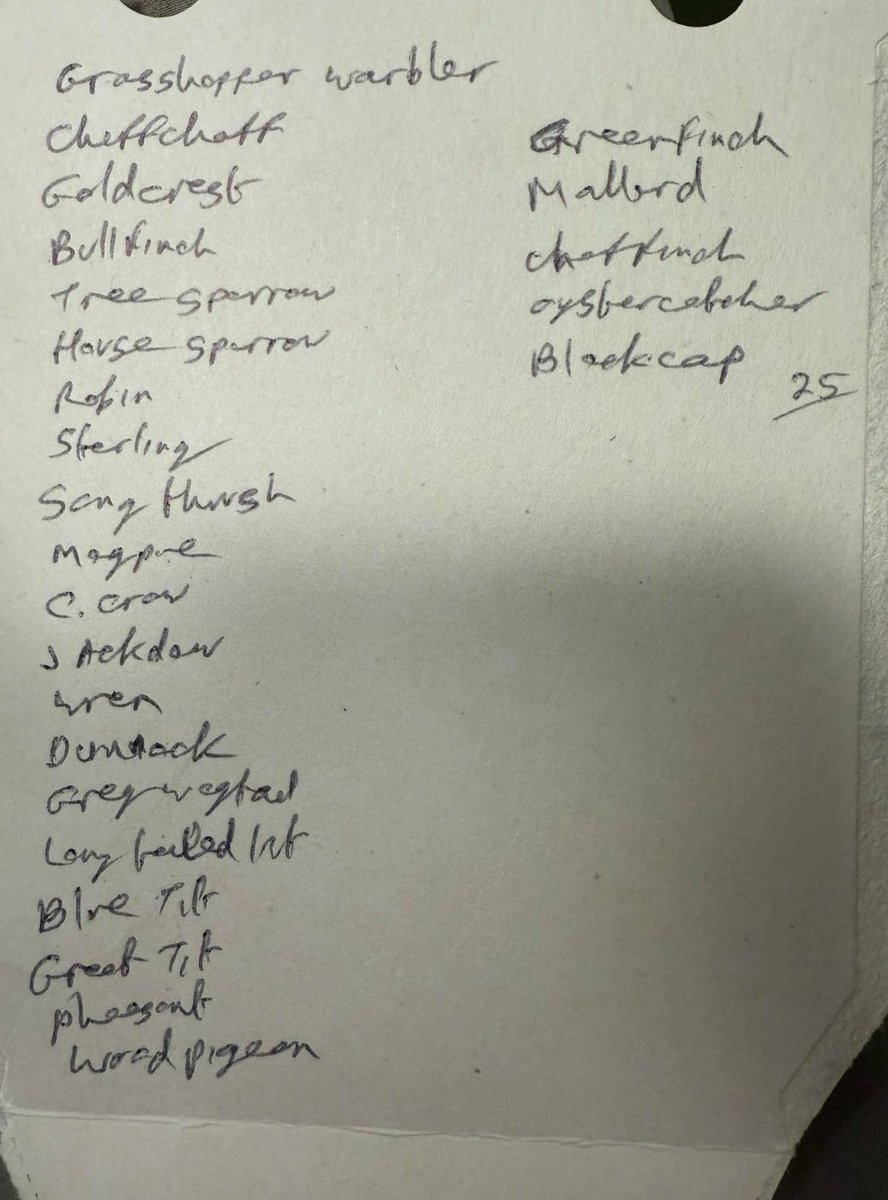 Grasshopper warbler
Chiffchaff
Goldcrest
Bullfinch
Tree sparrow
House sparrow
Robin
Starling
Song thrush
Magpie
C. crow
JAckdaw
wren
Dunnock
Grey wagtail
Long tailed tit
Blue Tit
Great Tit
pheasant
Wood pigeon
Greenfinch
Mallard
chaffinch
oystercatcher
Blackcap
25